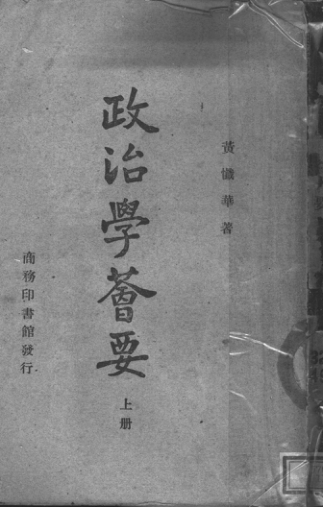 黃懺華著
政治學薈要
上册
商務印書館發行